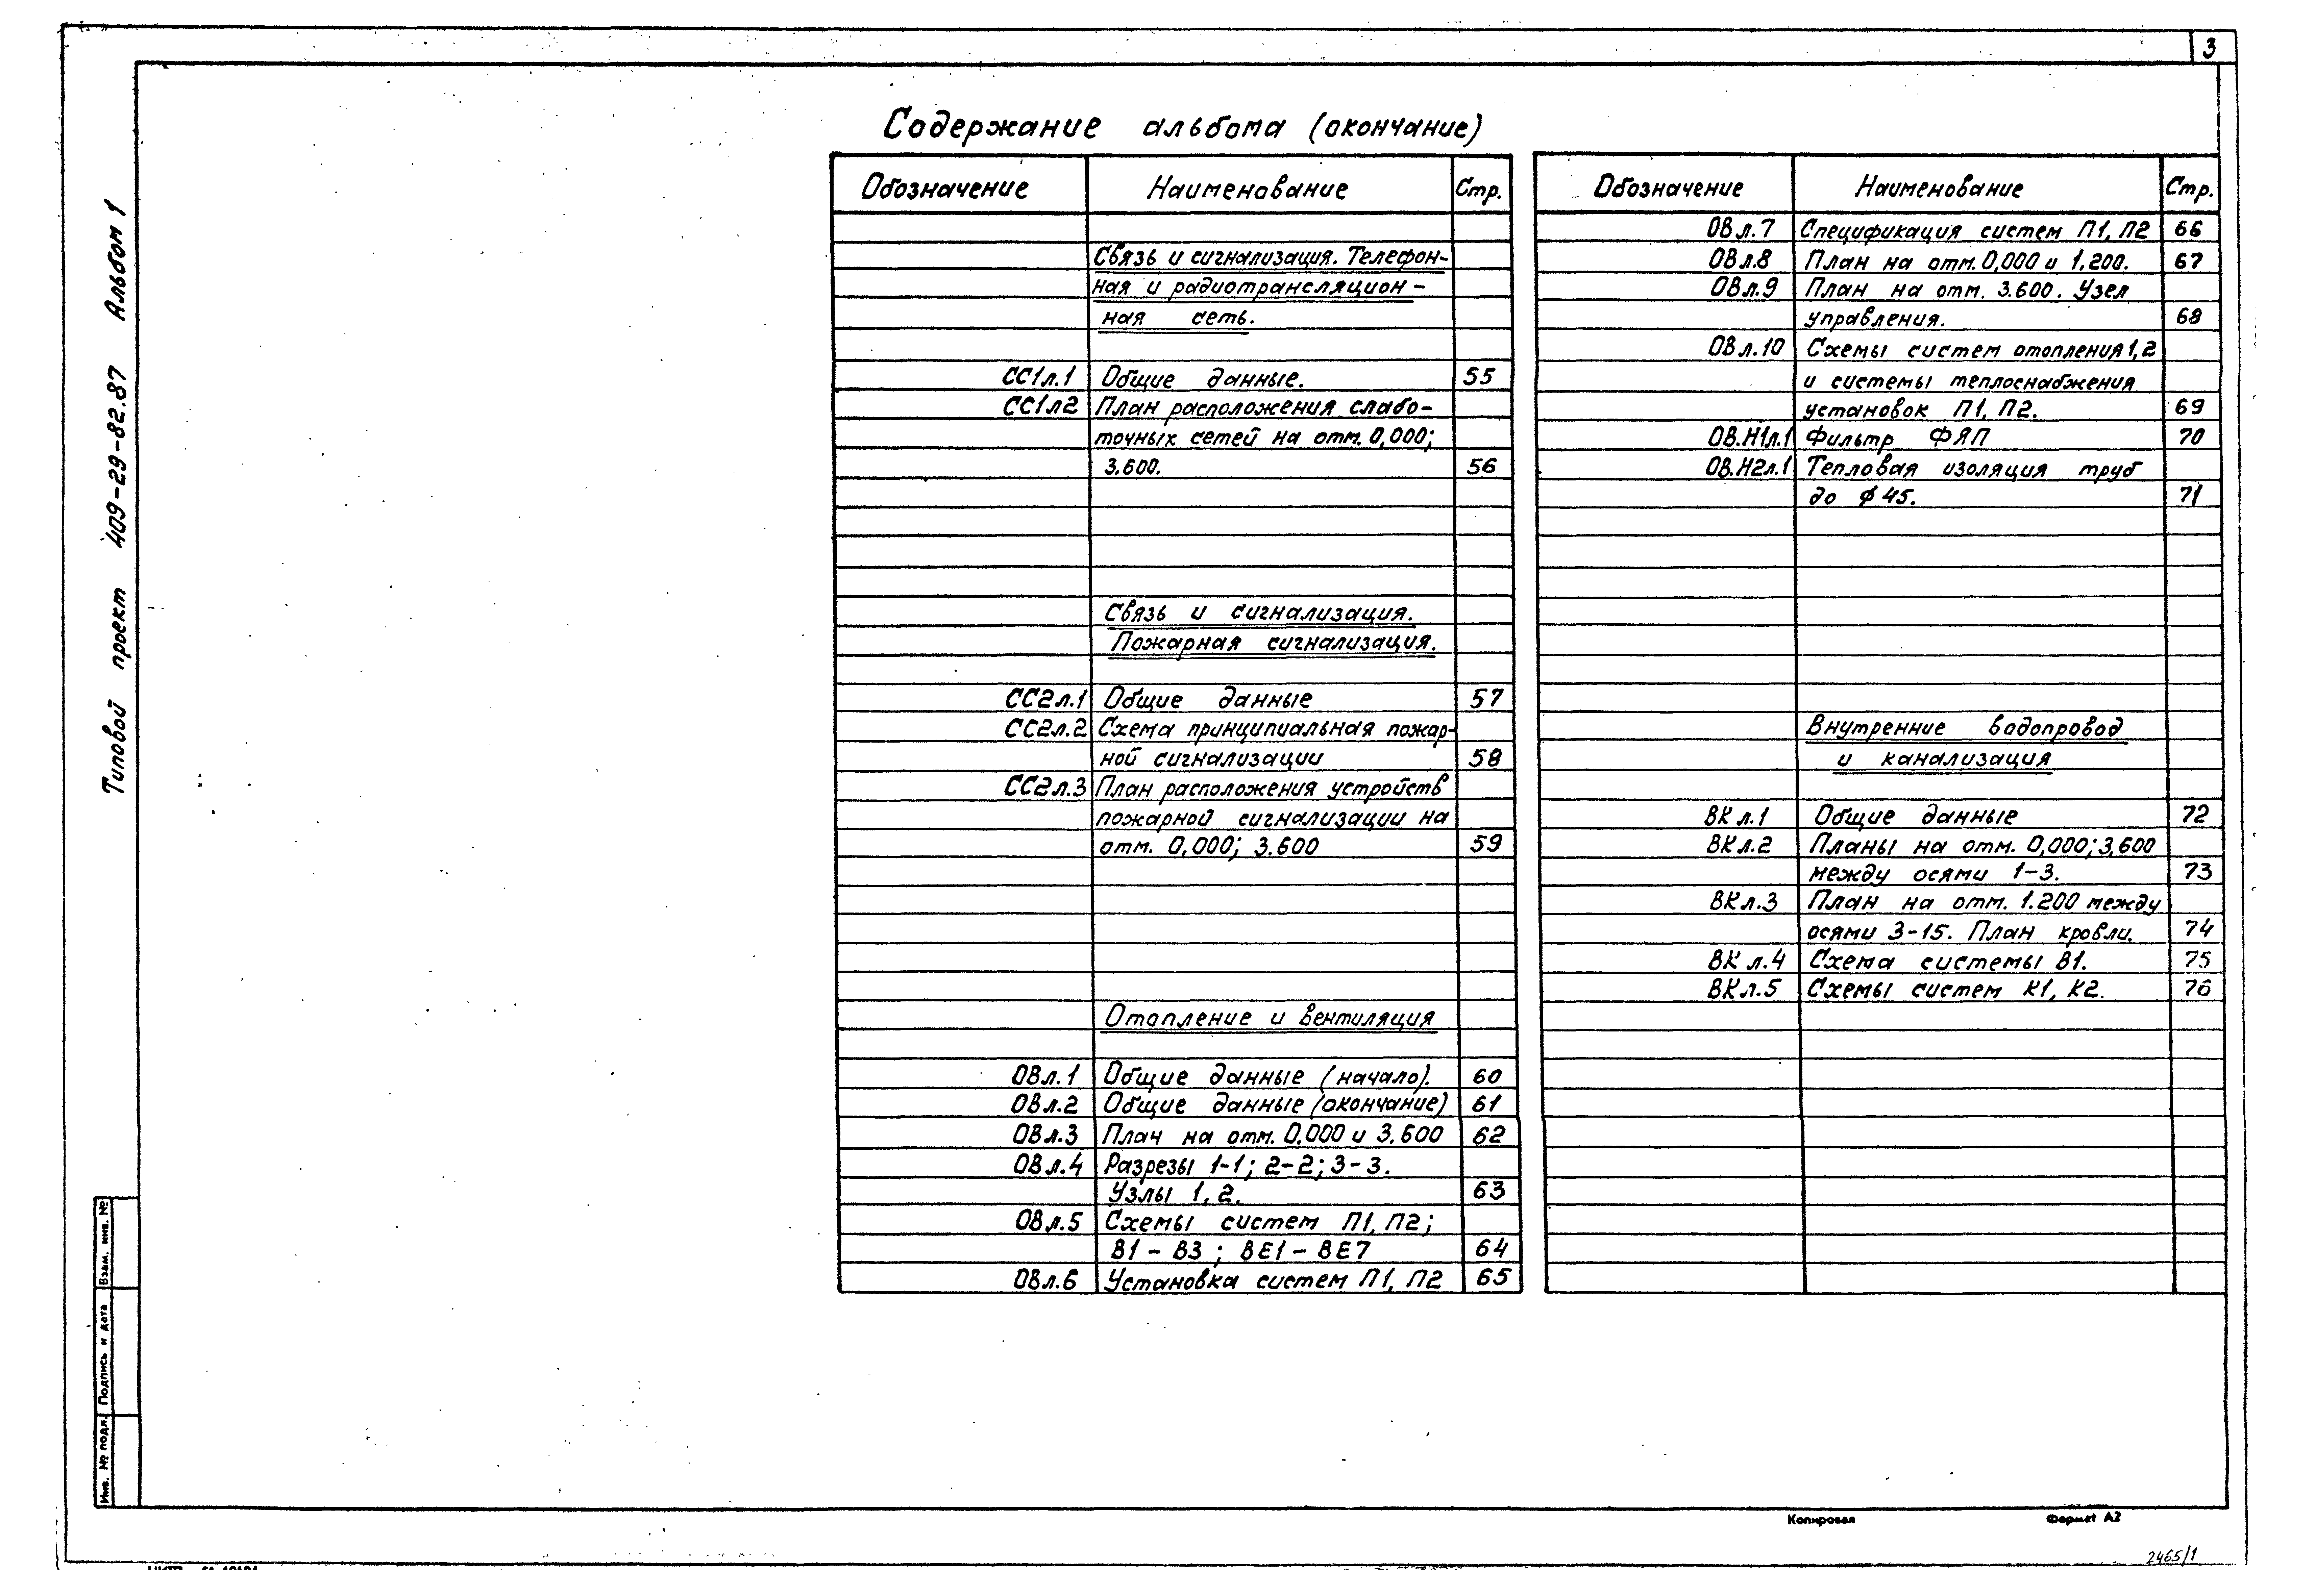 3
Содержание альбома (окончание)
Типовой проект 409-29-82.87 Альбом 1
Обозначение Наименование Стр.
Связь и сигнализация. Телефон-
ная и радиотрансляцион-
ная сеть.
СС1л.1 Общие данные. 55
СС1л2 План расположения слабо-
точных сетей на отм. 0,000;
3.600. 56
Связь и сигнализация.
Пожарная сигнализация.
СС2л.1 Общие данные 57
СС2л.2 Схема принципиальная пожар-
ной сигнализации 58
СС2л.3 План расположения устройств
пожарной сигнализации на
отм. 0,000; 3.600 59
Отопление и вентиляция
ОВл.1 Общие данные (начало). 60
ОВл.2 Общие данные (окончание) 61
ОВл.3 План на отм. 0,000 и 3,600 62
ОВл.4 Разрезы 1-1; 2-2; 3-3.
Узлы 1, 2. 63
ОВл.5 Схемы систем П1, П2;
В1-В3; ВЕ1-ВЕ7 64
ОВл.6 Установка систем П1, П2 65
Обозначение Наименование Стр.
ОВл.7 Спецификация систем П1, П2 66
ОВл.8 План на отм. 0,000 и 1,200. 67
ОВл.9 План на отм. 3.600. Узел
управления. 68
ОВл.10 Схемы систем отопления 1,2
и системы теплоснабжения
установок П1, П2. 69
ОВ.Н1л.1 Фильтр ФЯП 70
ОВ.Н2л.1 Тепловая изоляция труб
до ф45. 71
Внутренние водопровод
и канализация
ВКл.1 Общие данные 72
ВКл.2 Планы на отм. 0,000; 3,600
между осями 1-3. 73
ВКл.3 План на отм. 1.200 между
осями 3-15. План кровли. 74
ВКл.4 Схема системы В1. 75
ВКл.5 Схемы систем К1, К2. 76
Инв. № подл. Подпись и дата Взам. инв. №
Копировал Формат А2
2465/1